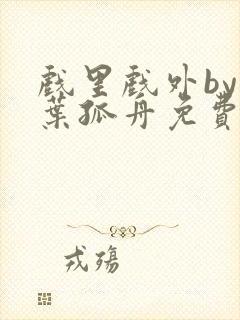 戲里戲外by
葉孤舟免費
戎殤